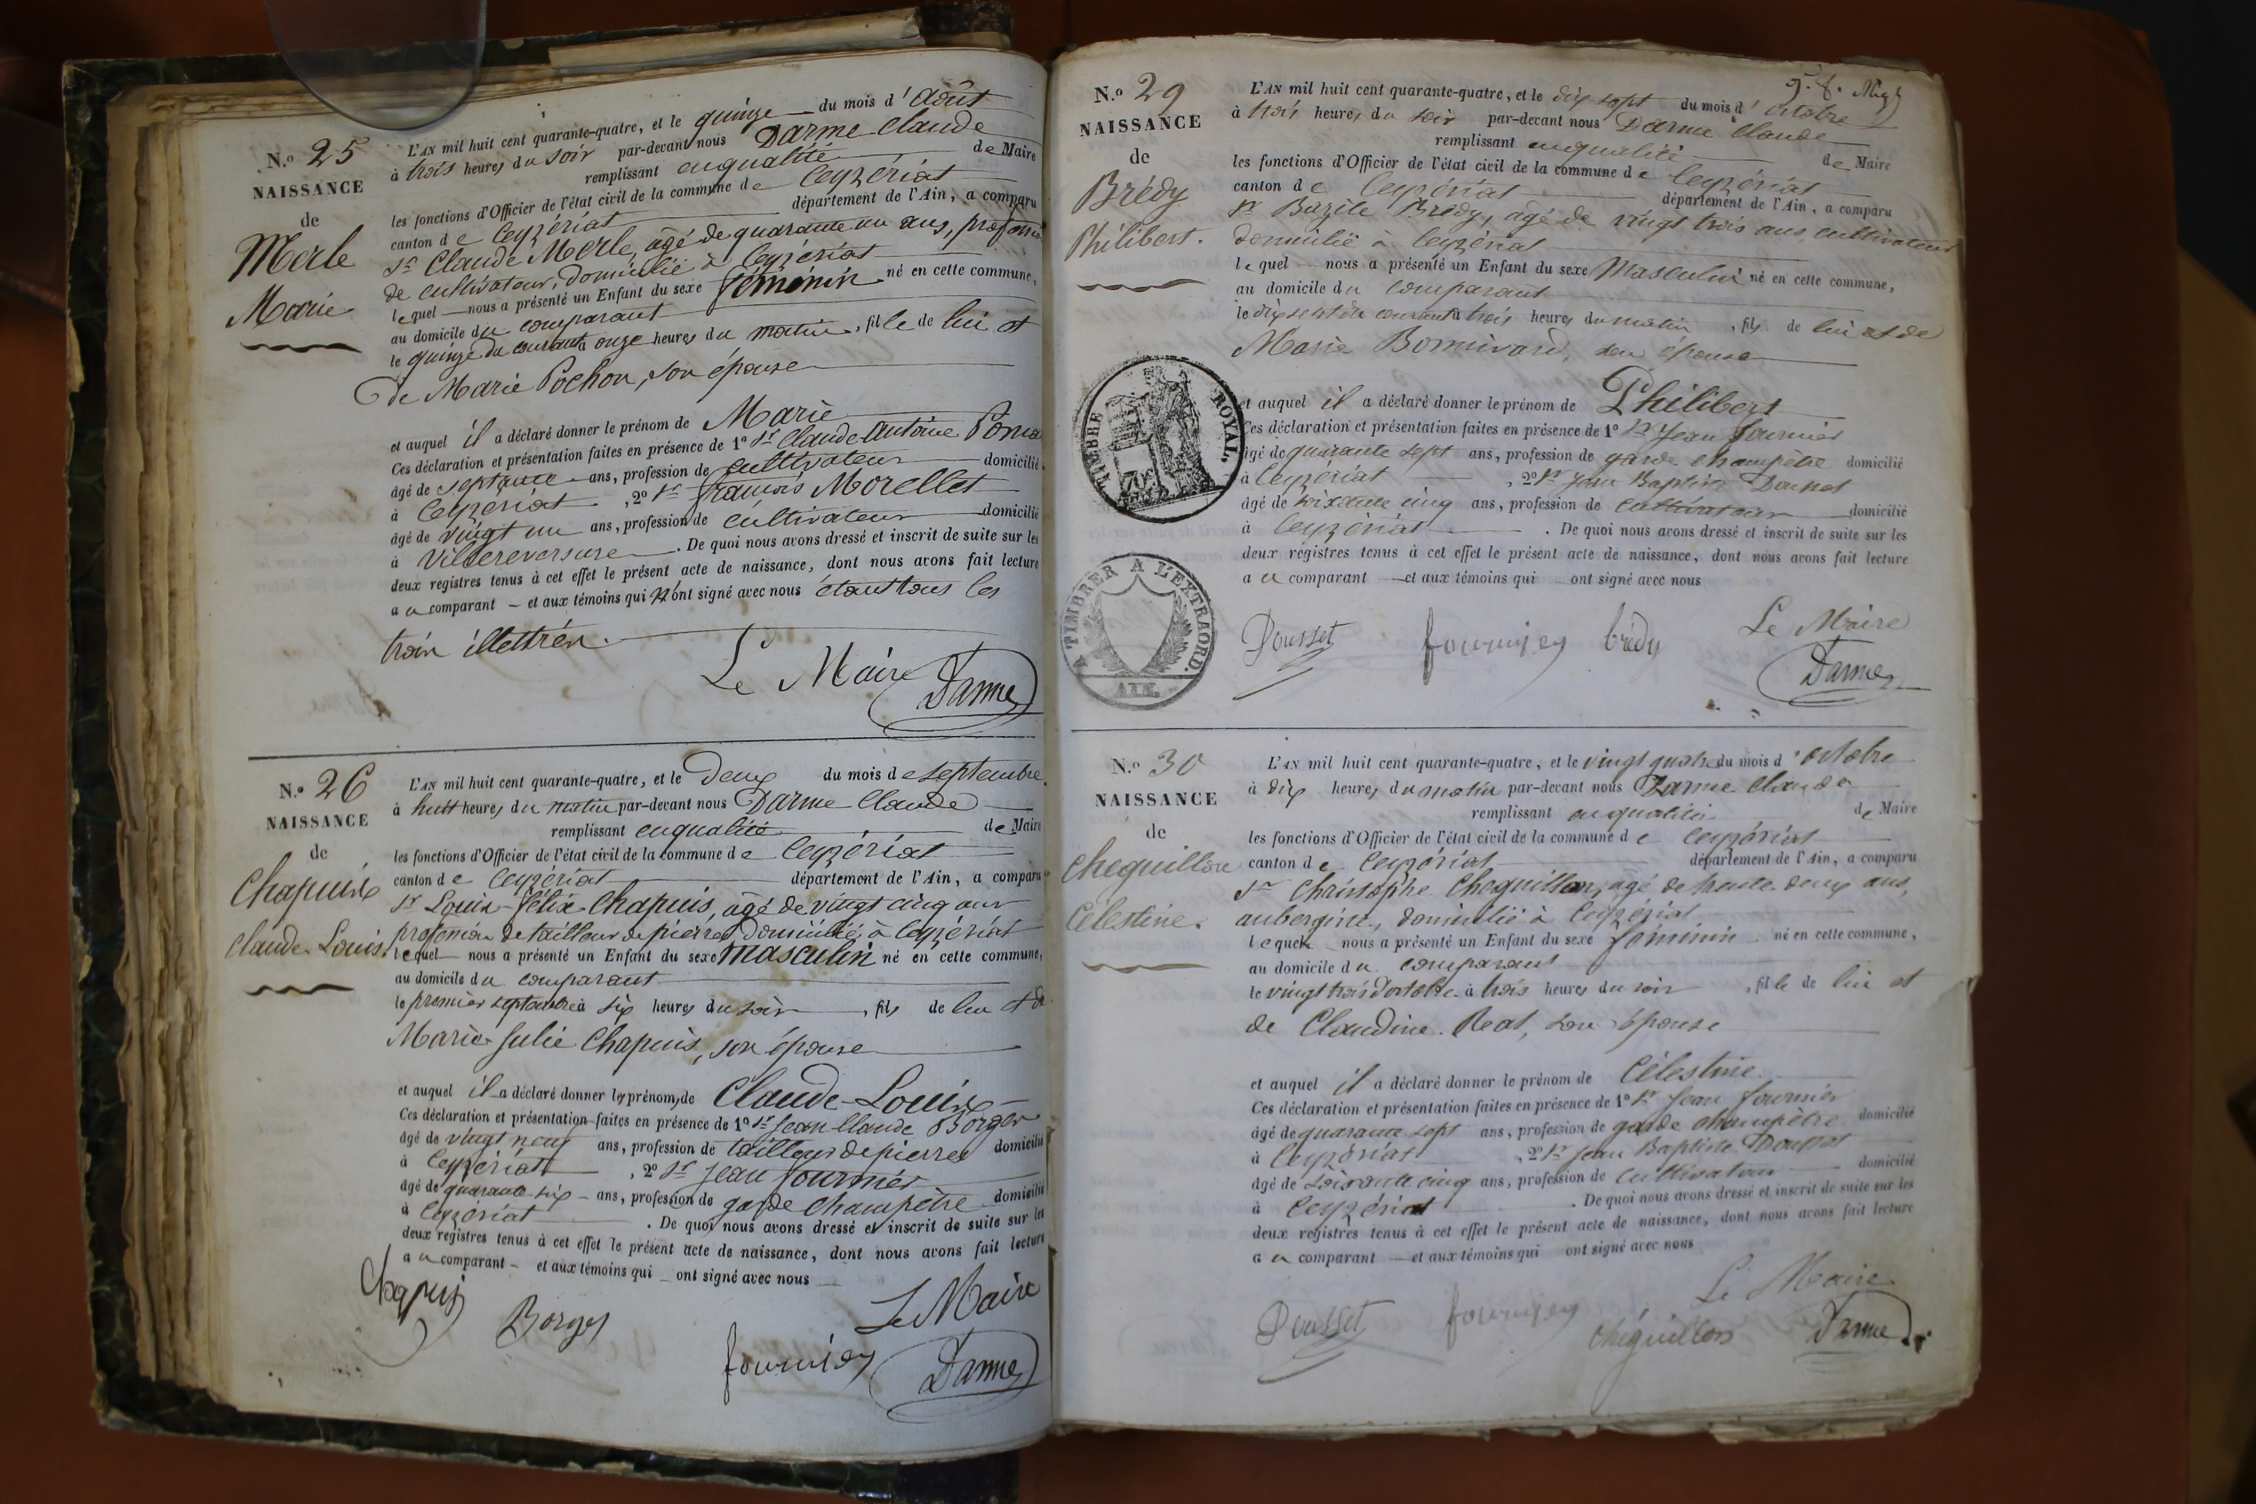 N.o 25
NAISSANCE
de
Merle
Marie
L'AN mil huit cent quarante-quatre, et le quinze du mois d' août
à trois heures du soir par-devant nous Darme Claude
remplissant en qualité de Maire
les fonctions d'Officier de l'état civil de la commune de Ceyzériat
canton de Ceyzériat département de l'Ain, a comparu
Sr Claude Merle, âgé de quarante un ans, profession
de cultivateur, domicilié à Ceyzériat
lequel nous a présenté un Enfant du sexe féminin né en cette commune,
au domicile du comparant
le quinze du courant à onze heures du matin, fille de lui et
de Marie Pochon, son épouse
et auquel il a déclaré donner le prénom de Marie
Ces déclaration et présentation faites en présence de 1º Sr Claude Antoine
âgé de septante ans, profession de cultivateur domicilié
à Ceyzériat, 2º Sr françois Morellet
âgé de vingt un ans, profession de cultivateur domicilié
à Villereversure. De quoi nous avons dressé et inscrit de suite sur les
deux registres tenus à cet effet le présent acte de naissance, dont nous avons fait lecture
au comparant et aux témoins qui n'ont signé avec nous étant tous les
trois illettrés.
Le Maire
Darme
N.o 26
NAISSANCE
de
Chapuis
Claude-Louis.
L'AN mil huit cent quarante-quatre, et le Deux du mois de septembre
à huit heures du matin par-devant nous Darme Claude
remplissant en qualité de Maire
les fonctions d'Officier de l'état civil de la commune de Ceyzériat
canton de Ceyzériat département de l'Ain, a comparu
Sr Louis-félix Chapuis, âgé de vingt cinq ans
profession de tailleur de pierres, domicilié à Ceyzériat
lequel nous a présenté un Enfant du sexe masculin né en cette commune,
au domicile du comparant
le premier septembre à six heures du soir, fils de lui et de
Marie-Julie Chapuis, son épouse
et auquel il a déclaré donner les prénoms de Claude-Louis
Ces déclaration et présentation faites en présence de 1º Sr Jean-Claude Borges
âgé de vingt neuf ans, profession de tailleur de pierres domicilié
à Ceyzériat, 2º Sr Jean fournier
âgé de quarante-six ans, profession de garde champêtre domicilié
à Ceyzériat. De quoi nous avons dressé et inscrit de suite sur les
deux registres tenus à cet effet le présent acte de naissance, dont nous avons fait lecture
au comparant et aux témoins qui ont signé avec nous
Chapuis
Borges
fournier
Le Maire
Darme
N.o 29
NAISSANCE
de
Brédy
Philibert.
L'AN mil huit cent quarante-quatre, et le dix sept du mois d' octobre
à trois heures du soir par-devant nous Darme Claude
remplissant en qualité de Maire
les fonctions d'Officier de l'état civil de la commune de Ceyzériat
canton de Ceyzériat département de l'Ain, a comparu
Sr Bazile Brédy, âgé de vingt trois ans cultivateur
domicilié à Ceyzériat
lequel nous a présenté un Enfant du sexe Masculin né en cette commune,
au domicile du comparant
le dix sept du courant à trois heures du matin, fils de lui et de
Marie Bonnivard, son épouse
TIMBRE ROYAL.
et auquel il a déclaré donner le prénom de Philibert
Ces déclaration et présentation faites en présence de 1º Sr Jean fournier
âgé de quarante sept ans, profession de garde champêtre domicilié
à Ceyzériat, 2º Sr Jean Baptiste Dousset
âgé de soixante cinq ans, profession de cultivateur domicilié
à Ceyzériat. De quoi nous avons dressé et inscrit de suite sur les
deux registres tenus à cet effet le présent acte de naissance, dont nous avons fait lecture
au comparant et aux témoins qui ont signé avec nous
A TIMBRER A L'EXTRAORD.
AIN.
Dousset fournier brédy
Le Maire
Darme
N.o 30
NAISSANCE
de
Cheguillon
Célestine.
L'AN mil huit cent quarante-quatre, et le vingt quatre du mois d' octobre
à dix heures du matin par-devant nous Darme Claude
remplissant en qualité de Maire
les fonctions d'Officier de l'état civil de la commune de Ceyzériat
canton de Ceyzériat département de l'Ain, a comparu
Sr Christophe Cheguillon, âgé de trente deux ans,
aubergiste, domicilié à Ceyzériat
lequel nous a présenté un Enfant du sexe féminin né en cette commune,
au domicile du comparant
le vingt trois d'octobre à trois heures du soir, fille de lui et
de Claudine Reat, son épouse
et auquel il a déclaré donner le prénom de Célestine
Ces déclaration et présentation faites en présence de 1º Sr Jean fournier
âgé de quarante sept ans, profession de garde champêtre domicilié
à Ceyzériat, 2º Sr Jean Baptiste Dousset
âgé de soixante cinq ans, profession de cultivateur domicilié
à Ceyzériat. De quoi nous avons dressé et inscrit de suite sur les
deux registres tenus à cet effet le présent acte de naissance, dont nous avons fait lecture
au comparant et aux témoins qui ont signé avec nous
Le Maire
Dousset fournier chéguillon Darme